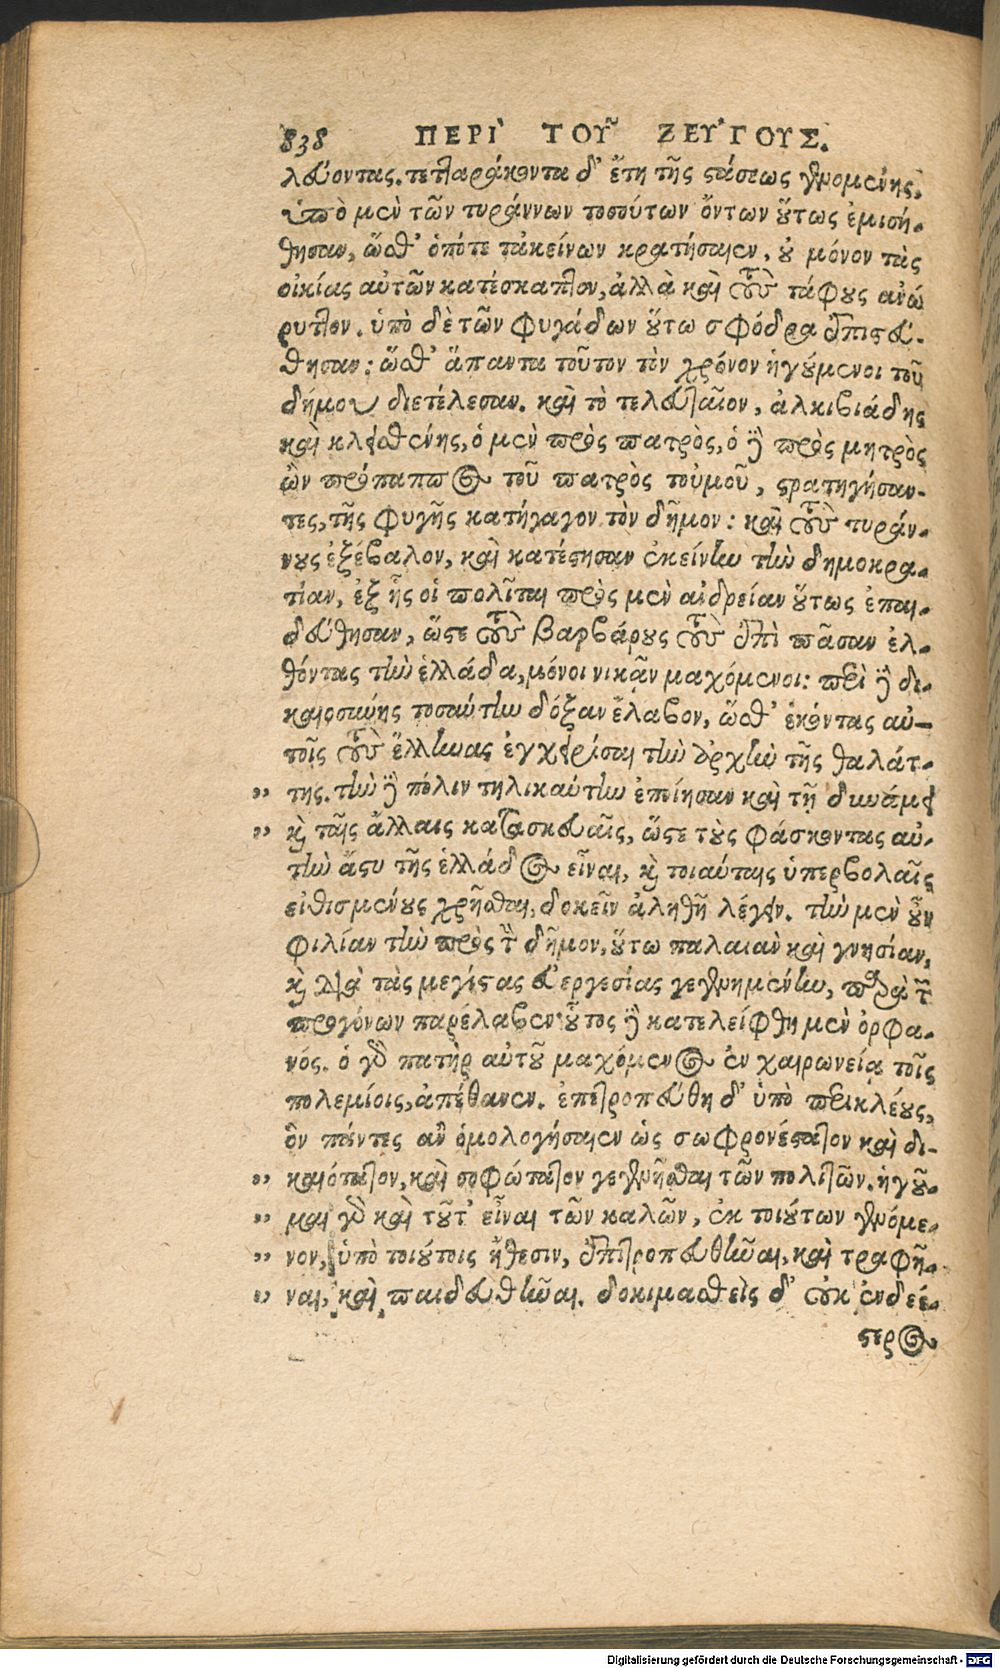 838 ΠΕΡῚ ΤΟΥ͂ ΖΕΎΓΟΥΣ.
λεύοντας. τετταράκοντα δ' ἔτη τῆς στάσεως γενομένης,
ὑπὸ μὲν τῶν τυράννων τοσούτων ὄντων οὕτως ἐμισή-
θησαν, ὥσθ' ὁπότε τἀκείνων κρατήσαιεν, οὐ μόνον τὰς
οἰκίας αὐτῶν κατέσκαπτον, ἀλλὰ καὶ τοὺς τάφους ἀνώ
ρυττον. ὑπὸ δὲ τῶν φυγάδων οὕτω σφόδρα ἐπιστεύ-
θησαν: ὥσθ' ἅπαντα τοῦτον τὸν χρόνον ἡγούμενοι τοῦ
δήμου διετέλεσαν. καὶ τὸ τελευταῖον, ἀλκιβιάδης
καὶ κλεισθένης, ὁ μὲν πρὸς πατρὸς, ὁ δὲ πρὸς μητρὸς
ὢν πρόπαππος τοῦ πατρὸς τοὐμοῦ, στρατηγήσαν-
τες, τῆς φυγῆς κατήγαγον τὸν δῆμον: καὶ τοὺς τυράν-
νους ἐξέβαλον, καὶ κατέστησαν ἐκείνην τὴν δημοκρα-
τίαν, ἐξ ἧς οἱ πολῖται πρὸς μὲν ἀνδρείαν οὕτως ἐπαι-
δεύθησαν, ὥστε τοὺς βαρβάρους τοὺς ἐπὶ πᾶσαν ἐλ-
θόντας τὴν ἑλλάδα, μόνοι νικᾶν μαχόμενοι: περὶ δὲ δι-
καιοσύνης τοσαύτην δόξαν ἔλαβον, ὥσθ' ἑκόντας αὐ-
τοῖς τοὺς ἕλληνας ἐγχειρίσαι τὴν ἀρχὴν τῆς θαλάτ-
" της. τὴν δὲ πόλιν τηλικαύτην ἐποίησαν καὶ τῇ δυνάμει
" καὶ ταῖς ἄλλαις κατασκευαῖς, ὥστε τοὺς φάσκοντας αὐ-
τὴν ἄστυ τῆς ἑλλάδος εἶναι, καὶ τοιαύταις ὑπερβολαῖς
εἰθισμένους χρῆσθαι, δοκεῖν ἀληθῆ λέγειν. τὴν μὲν οὖν
φιλίαν τὴν πρὸς τὸν δῆμον, οὕτω παλαιὰν καὶ γνησίαν,
καὶ διὰ τὰς μεγίστας εὐεργεσίας γεγενημένην, παρὰ τῶν
προγόνων παρέλαβεν· οὗτος δὲ κατελείφθη μὲν ὀρφα-
νός. ὁ γὰρ πατὴρ αὐτοῦ μαχόμενος ἐν χαιρωνείᾳ τοῖς
πολεμίοις, ἀπέθανεν. ἐπετροπεύθη δ' ὑπὸ περικλέους,
ὃν πάντες ἂν ὁμολογήσαιεν ὡς σωφρονέστατον καὶ δι-
" καιότατον, καὶ σοφώτατον γεγενῆσθαι τῶν πολιτῶν. ἡγοῦ-
" μαι γὰρ καὶ τοῦτ' εἶναι τῶν καλῶν, ἐκ τοιούτων γενόμε-
" νον, ὑπὸ τοιούτοις ἤθεσιν, ἐπιτροπευθῆναι, καὶ τραφῆ-
" ναι, καὶ παιδευθῆναι. δοκιμασθεὶς δ' οὐκ ἐνδεέ-
στερος
Digitalisierung gefördert durch die Deutsche Forschungsgemeinschaft - DFG